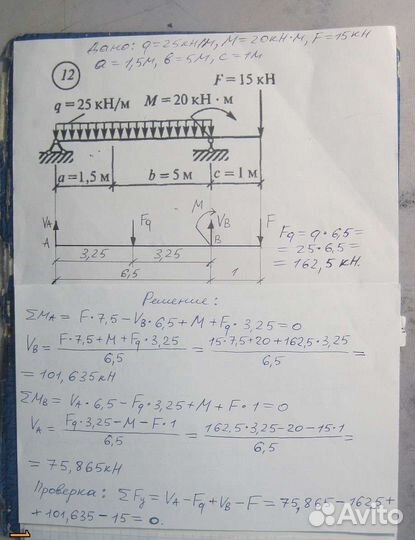 Дано: q=25кН/м, M=20кН·м, F=15кН
a=1,5м, в=5м, с=1м
12
F = 15 кН
q = 25 кН/м M = 20 кН · м
a = 1,5 м b = 5 м c = 1 м
VA Fq M VB F
A B
3,25 3,25
6,5 1
Fq = q · 6,5 =
= 25 · 6,5 =
= 162,5 кН.
Решение:
ΣMA = F·7,5 - VB·6,5 + M + Fq·3,25 = 0
VB = (F·7,5 + M + Fq·3,25) / 6,5 = (15·7,5 + 20 + 162,5·3,25) / 6,5 =
= 101,635кН
ΣMB = VA·6,5 - Fq·3,25 + M + F·1 = 0
VA = (Fq·3,25 - M - F·1) / 6,5 = (162,5·3,25 - 20 - 15·1) / 6,5 =
= 75,865кН
Проверка: ΣFy = VA - Fq + VB - F = 75,865 - 162,5 +
+ 101,635 - 15 = 0.
Avito